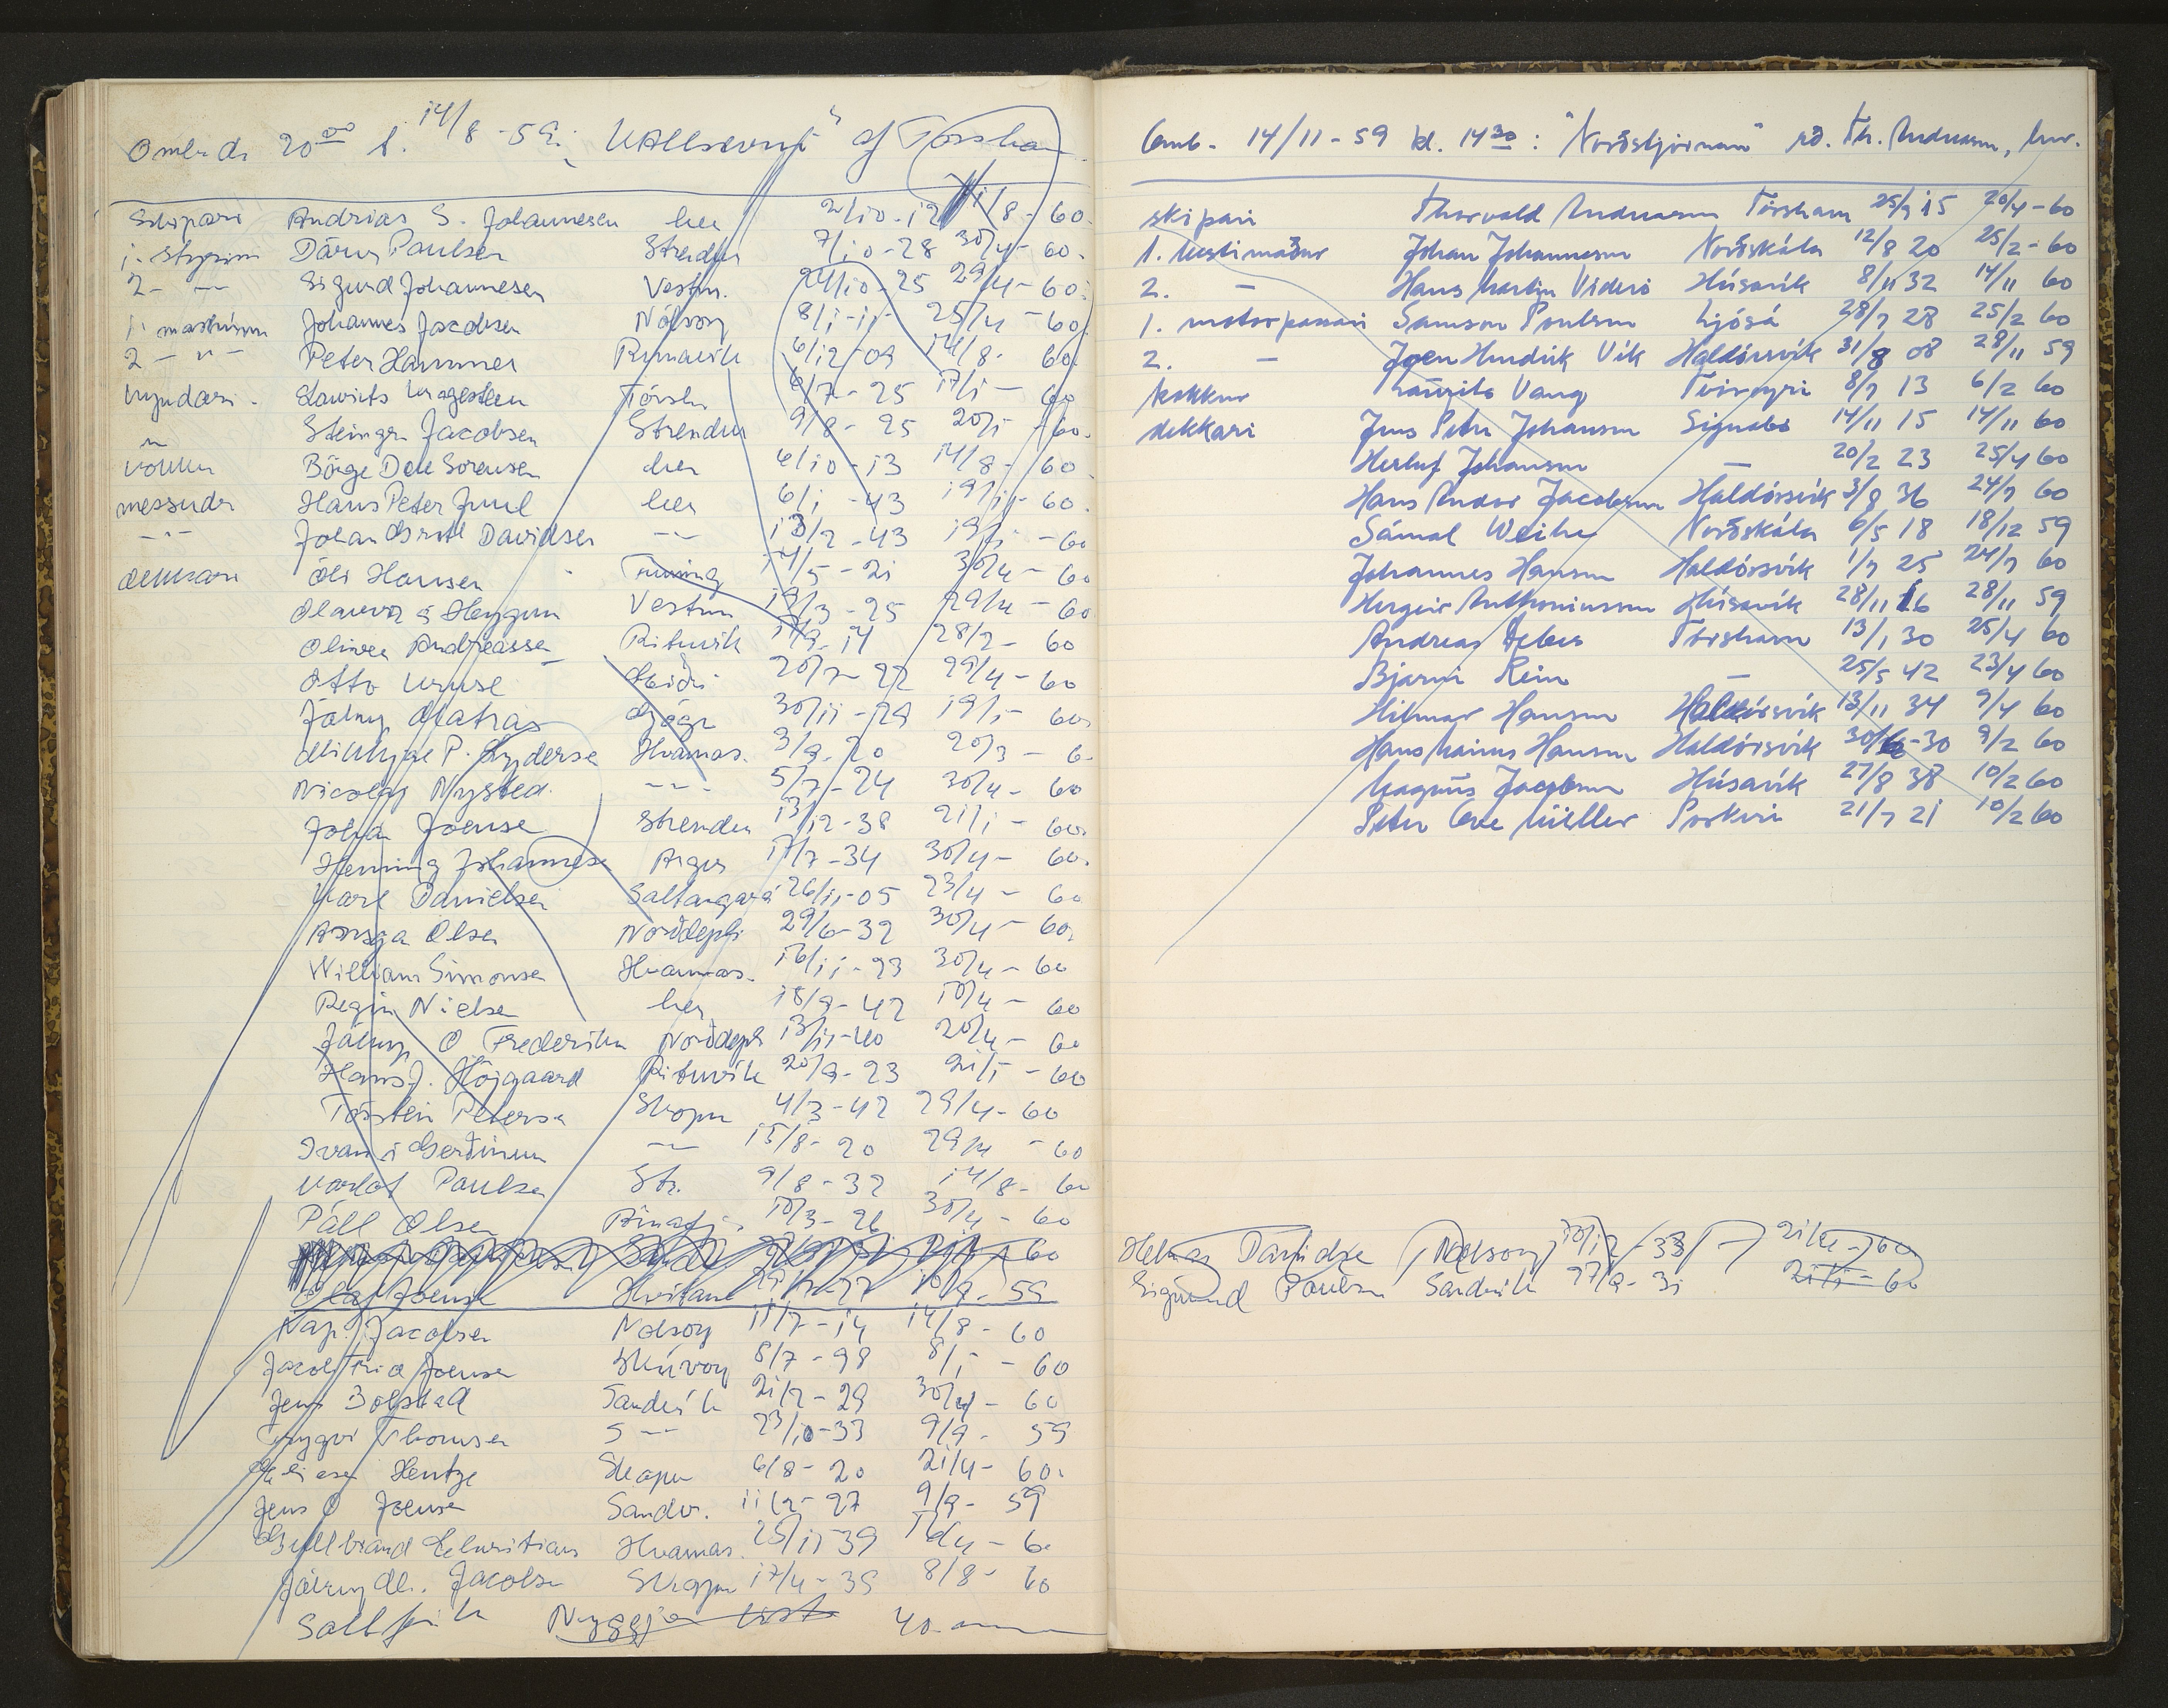 20 00 14/8 - 59: af Tórshavn
Skipari Andrias S. Johannesen her 2/10-12 1/8-60.
1. Dánus Paulsen Strendur 7/10-28 30/4-60.
2- -"- Sigurd Johannesen Vestm. 24/10-25 29/4-60.
1. Johannes Jacobsen Nólsoy 8/1-11 25/4-60.
2 -"- Peter Hammer Runavík 6/12-09 14/8-60.
Lawrits Tórsh. 6/7-25 17/1-60
-"- Steingr. Jacobsen Strendur 9/8-25 20/1-60.
Börge Sörensen her 6/10-13 14/8-60
Hans Peter Juul her 6/1-43 19/11-60.
-"- Davidsen -"- 13/2-43 19/1-60
dekkari Óli Hansen 14/5-21 30/4-60
Olavur á Heygum Vestm 19/3-25 29/4-60
Oliver Andreassen Rituvík 17/9-14 28/2-60
Otto 20/7-22 29/4-60
Jákup Matras Gjógv 30/11-29 19/1-60
P. Hvannas. 3/9-20 20/3-6
Nicolaj Nysted. -"- 5/7-24 30/4-60
Joensen Strendur 13/12-38 21/1-60
Henning Johannese Argir 17/7-34 30/4-60.
Karl Danielsen Saltangará 26/11-05 23/4-60
Olsen Norðdepli 29/6-32 30/4-60
William Simonsen Hvannas. 16/11-23 30/4-60
Regin Nielsen her 18/9-42 10/4-60
Jákup O Frederiksen Norðdepli 13/11-40 20/4-60
Hans J. Höjgaard Rituvík 20/9-23 21/1-60
Torstein Petersen Skopun 4/3-42 29/4-60
Ivan í Gerðinum -"- 15/8-20 29/4-60
Paulsen Str. 9/8-32 14/8-60
Páll Olsen 10/3-26 30/4-60
60
Olaf Joensen 59
Nap. Jacobsen Nolsoy 11/7-14 14/8-60
Joensen Skúvoy 8/7-98 8/1-60
Jens Bólstad Sandvík 21/2-29 30/4-60
Tryggvi Thomsen S-"- 23/10-33 9/9-59
Hentze Skopun 6/8-20 21/4-60.
Jens O Joensen Sandv. 11/2-27 9/9-59
Gullbrand Christians Hvannas. 25/11-39
Jákup M. Jacobsen Skopun 17/4-39 8/8-60
40
Omb. 14/11-59 kl. 14 30: "Norðstjørnan" rð. Th. Andreasen, her.
skipari Thorvald Andreasen Tórshavn 25/9 15 20/4-60
1. bestimaður Johan Johannesen Norðskála 12/8 20 25/2-60
2. - Hans Martin Viderø Húsavík 8/11 32 14/11 60
1. motorpassari Samson Poulsen Ljósá 28/7 28 25/2 60
2. - Joen Hendrik Vik Haldórsvík 31/8 08 28/11 59
kokkur Laurits Vang Tvøroyri 8/9 13 6/2 60
dekkari Jens Peter Johansen Signabø 14/11 15 14/11 60
Herluf Johansen - 20/2 23 25/4 60
Hans Andor Jacobsen Haldórsvík 3/8 36 24/9 60
Sámal Weihe Norðskála 6/5 18 18/12 59
Johannes Hansen Haldórsvík 1/9 25 24/9 60
Hergeir Anthoniussen Húsavík 28/11 16 28/11 59
Andreas Debes Tórshavn 13/1 30 25/4 60
Bjarni Rein - 25/5 42 23/4 60
Hilmar Hansen Haldórsvík 13/11 34 9/4 60
Hans Marius Hansen Haldórsvík 30/6-30 9/2 60
Magnus Jacobsen Húsavík 27/8 38 10/2 60
Peter Ove Müller Porkeri 21/7 21 10/2 60
Davidsen (Nolsoy) 10/12-33 21/4-60
Sigmund Paulsen Sandvík 27/9-31 21/1-60